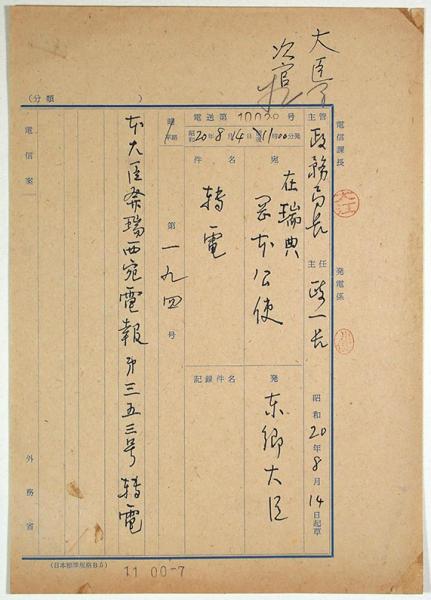 大臣
次官
(分類 )
電信課長
発電係
主管 政務局長
主任 政一長
昭和20年8月14日起草
電送第 10020 号
昭和20年8月14日 11時00分発
宛 在瑞典
岡本公使
発 東郷大臣
件名 転電
記録件名
第一九四号
本大臣発瑞西宛電報第三五三号転電
電信案
外務省
(日本標準規格B5)
11 00-7